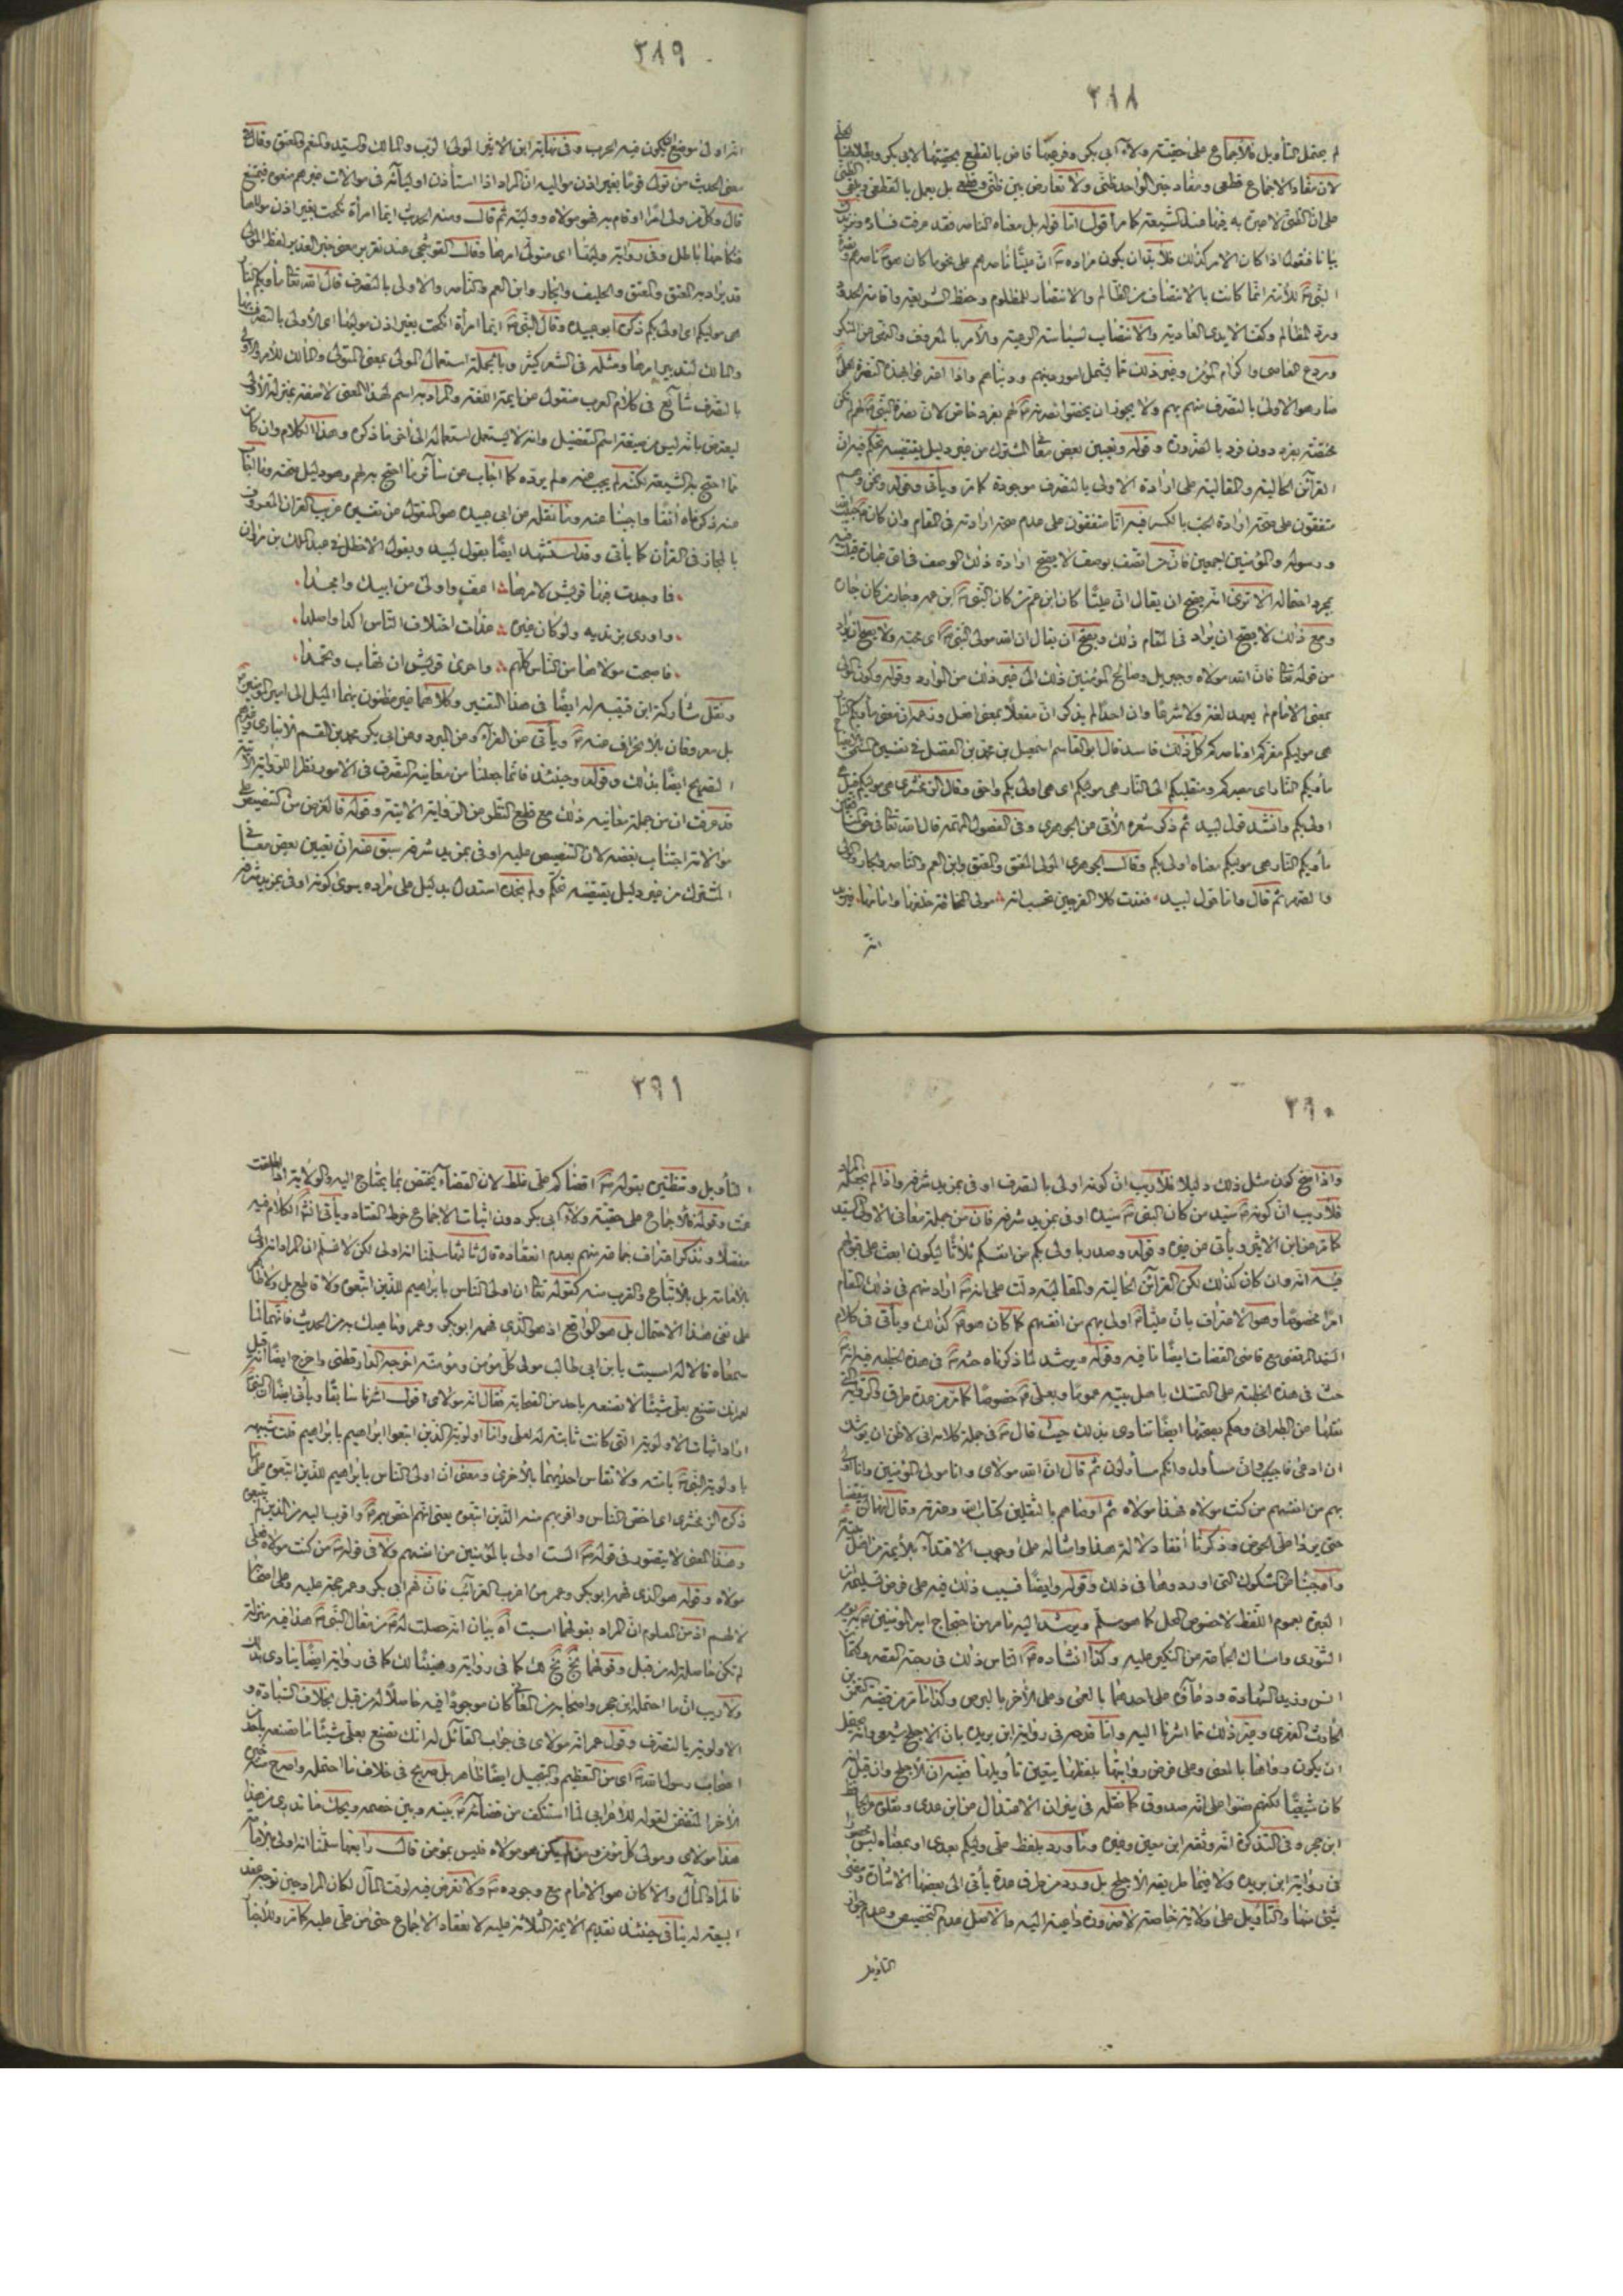 ٣٨٨
لم يحتمل التأويل فالاجماع على حقية ولاية ابى بكر وفرعيتها قاض بالقطع بحقيتها لابى بكر وبطلانها لعلى
لان مفاد الاجماع قطعى ومفاد خبر الواحد ظنى ولا تعارض بين ظنى وقطعى بل يعمل بالقطعى ويلغى الظنى
على ان الظنى لا عبرة به فيها عند الشيعة كما مر اقول اما قوله بل معناه الناصر فقد عرفت فساده ونزيدك
بيانا فنقول اذا كان الامر كذلك فلابد ان يكون مراده ان عليا ناصرهم على نحو ما كان هو ناصرهم ونصرة
النبى للأمة انما كانت بالانتصاف من الظالم والانتصار للمظلوم وحفظ الشريعة واقامة الحدود
ورد المظالم وكف الايدى العادية والانتصاب لسياسة الرعية والأمر بالمعروف والنهى عن المنكر
وردع العاصى واكرام المؤمن وغير ذلك مما يشمل امور دينهم ودنياهم واذا اعترفوا بهذه النصرة لعلى
صار هو الاولى بالتصرف منهم بهم ولا يجوز ان يخصوا نصرته لهم بفرد خاص لان نصرة النبى لهم لم تكن
مختصة بفرد دون فرد بالضرورة وقوله وتعيين بعض معانى المشترك من غير دليل يقتضيه تحكم فيه ان
القرائن الحالية والمقالية على ارادة الاولى بالتصرف موجودة كما مر ويأتى وقوله ونحن وهم
متفقون على صحة ارادة الحب بالكسر فيه انا متفقون على عدم صحة ارادته فى المقام وان كان حبيب الله
ورسوله والمؤمنين اجمعين فان من اتصف بوصف لا يصح ارادة ذلك الوصف فى اى عبارة قيلت فيه
بمجرد احتماله الا ترى انه يصح ان يقال ان عليا كان ابن عم من كان النبى ابن عمه وجار من كان جاره
ومع ذلك لا يصح ان يراد فى المقام ذلك ويصح ان يقال ان الله مولى النبى اى محبه ولا يصح ان يراد
من قوله تعالى فان الله مولاه وجبريل وصالح المؤمنين ذلك الى غير ذلك من الموارد وقوله وكون المولى
بمعنى الامام لم يعهد لغة ولا شرعا وان احدا لم يذكر ان مفعلا بمعنى افعل ونحمل معنى مأويكم النار
هى موليكم مقركم او ناصركم كل ذلك فاسد قال ابو القاسم اسمعيل بن محمد بن الفضل فى تفسيره
مأويكم النار اى مصيركم ومنقلبكم الى النار هى موليكم اى هى اولى بكم واحق وقال الزمخشرى هى موليكم قيل هى
اولى بكم وانشد قول لبيد ثم ذكر شعره الآتى من الجوهرى وفى الفصول المهمة قال الله تعالى فى حق المنافقين
مأويكم النار هى موليكم معناه اولى بكم وقال الجوهرى المولى المعتق والمعتق وابن العم والناصر والجار والولى
والصهر ثم قال واما قول لبيد فغدت كلا الفرجين تحسب انه مولى المخافة خلفها وامامها فيريد
انه
٣٨٩
انه اولى موضع ان يكون فيه الحرب وفى نهاية ابن الاثير المولى الرب والمالك والسيد والمنعم والمعتق وقال فى
معنى الحديث من تولى قوما بغير اذن مواليه ان المراد اذا استأذن اولياءه فى موالاة غيرهم منعوه فيمتنع
قال وكل من ولى امرا او قام به فهو مولاه ووليه ثم قال ومنه الحديث ايما امرأة نكحت بغير اذن مولاها
فنكاحها باطل وفى رواية وليها اى متولى امرها وقال القوشجى عند تقريره معنى خبر الغدير لفظ المولى
قد يراد به المعتق والمعتق والحليف والجار وابن العم والناصر والاولى بالتصرف قال الله تعالى مأويكم النار
هى موليكم اى اولى بكم ذكره ابو عبيدة وقال النبى ايما امرأة انكحت بغير اذن موليها اى الاولى بالتصرف فيها
والمالك لتدبير امرها ومثله فى الشعر كثير وبالجملة استعمال المولى بمعنى المتولى والمالك للأمر والاولى
بالتصرف شائع فى كلام العرب منقول من ائمة اللغة والمراد به اسم لهذا المعنى لا صفة بمنزلة الأولى
ليعترض بأنه ليس من صيغة اسم التفضيل وانه لا يستعمل استعماله الى آخر ما ذكره وهذا الكلام وان كان
مما احتج به الشيعة لكنه لم يجب عنه ولم يرده كما اجاب عن سائر ما احتج به لهم وهو دليل صحته
منه ذكرناه آنفا واجبنا عنه وما نقله عن ابى عبيدة هو المنقول عن تفسيره غريب القرآن المعروف
بالمجاز فى القرأن كما يأتى وقد استشهد ايضا بقول لبيد وبقول الاخطل فى عبد الملك بن مروان
فما وجدت فيها قريش لامرها اعف واولى من ابيك وامجدا
واورى بزنديه ولو كان غيره غداة اختلاف الناس اكدا واصلدا
فاصبحت مولاها من الناس كلهم واحرى قريش ان تهاب وتحمدا
ونقل مشاركة ابن قتيبة له ايضا فى هذا التفسير وكلاهما غير مظنون بهما الميل الى امير المؤمنين
بل معروفان بالانحراف عنه ويأتى عن الفراء وعن المبرد وعن ابى بكر محمد بن القسم الانبارى وغيرهم
التصريح ايضا بذلك وقوله وحينئذ فانما جعلنا من معانيه التصرف فى الامور نظرا للرواية الآتية
قد عرفت ان من جملة معانيه ذلك مع قطع النظر عن الرواية الاتية وقوله فالغرض من التنصيص على
موالاته اجتناب بغضه لان التنصيص عليه اوفى بمزيد شرفه سبق منه ان تعيين بعض معانى
المشترك من غير دليل يقتضيه تحكم ولم نجده استدل بدليل على مراده سوى كونه اوفى بمزيد شرفه
٣٩٠
واذا صح كون مثل ذلك دليلا فلا ريب ان كونه اولى بالتصرف اوفى بمزيد شرفه واذا لم نجعله المراد
فلا ريب ان كونه سيد من كان النبى سيده اوفى بمزيد شرفه فان من جملة معانى الاولى السيد
كما مر عن ابن الاثير ويأتى عن غيره وقوله وصدر باولى بكم من انفسكم ثلاثا ليكون ابعث على قبولهم
فيه انه وان كان كذلك لكن القرائن الحالية والمقالية دلت على انه اراد منهم فى ذلك المقام
امرا مخصوصا وهو الاعتراف بان عليا اولى بهم من انفسهم كما كان هو كذلك ويأتى فى كلام
السيد المرتضى مع قاضى القضات ايضا ما فيه وقوله ويرشد لما ذكرناه حثه فى هذه الخطبة فيه انه
حث فى هذه الخطبة على التمسك باهل بيته عموما وبعلى خصوصا كما مر من عدة طرق والرواية التى
نقلها عن الطبرانى وحكم بصحتها ايضا تنادى بذلك حيث قال فى جملة كلامه انى لاظن ان يوشك
ان ادعى فاجيب وان مسأول وانكم مسأولون ثم قال ان الله مولاى وانا مولى المؤمنين وانا اولى
بهم من انفسهم من كنت مولاه فهذا مولاه ثم اوصاهم بالثقلين كتاب الله وعترته وقال انهما لن ينقضيا
حتى يردا على الحوض وذكرنا آنفا دلالة هذا وامثاله على وجوب الاقتداء بالائمة من اهل بيته
واجبنا عن الشكوك التى اوردوها فى ذلك وقوله وايضا فسبب ذلك فيه على فرض تسليمه ان
العبرة بعموم اللفظ لا خصوص المحل كما هو مسلم ويرشد اليه ما مر من احتجاج امير المؤمنين به يوم
الشورى وامساك الجماعة عن النكير عليه وكذا انشاده الناس ذلك فى رحبة القصة وكتمان
انس وزيد الشهادة ودعائه على احدهما بالعمى وعلى الآخر بالبرص وكذا ما مر من قضية النعمن بن
الحارث الفهرى وغير ذلك مما اشرنا اليه واما قوله فى رواية ابن بريدة بان الاجلح شيعى وانه يحتمل
ان يكون رواها بالمعنى وعلى فرض روايتها بلفظها يتعين تأويلها ففيه ان الاجلح وان قيل انه
كان شيعيا لكنهم نصوا على انه صدوق كما نقله فى ميزان الاعتدال عن ابن عدى وتقدم
ابن حجر وفى التذكرة انه وثقه ابن معين وغيره وما ورد بلفظ على وليكم بعدى او بمعناه ليس محصورا
فى رواية ابن بريدة ولا فيما طريقة الاجلح بل ورد من طرق عدة يأتى الى بعضها الاشارة ومضى
شئ منها والتأويل على ولاية خاصة لا ضرورة داعية اليه والاصل عدم التخصيص وعدم جواز
التأويل
٣٩١
التأويل وتنظيره بقوله اقضاكم على غلط لان القضاء يختص بما يحتاج اليه والولاية اذا اطلقت
عمت وقوله فالاجماع على حقية ولاية ابى بكر دون اثبات الاجماع خرط القتاد ويأتى الكلام فيه
مفصلا ونذكر اعتراف جماعة منهم بعدم انعقاده قال ثالثها سلمنا انه اولى لكن لا نسلم ان المراد انه اولى
بالامامة بل بالاتباع والقرب منه كقوله تعالى ان اولى الناس بابراهيم للذين اتبعوه ولا قاطع بل ولا ظاهر
على نفى هذا الاحتمال بل هو الواقع اذ هو الذى فهمه ابوبكر وعمر وناهيك بهما من الحديث فانهما لما
سمعاه قالا له امسيت يا بن ابى طالب مولى كل مؤمن ومؤمنة اخرجه الدارقطنى واخرج ايضا انه قيل
لعمر انك تصنع بعلى شيئا لا تصنعه باحد من الصحابة فقال انه مولاى اقول اشرنا سابقا ويأتى ايضا ان النبى
اراد اثبات الاولوية التى كانت ثابتة له لعلى واما اولوية الذين اتبعوا ابراهيم بابراهيم فلا شبيه
باولوية النبى بامته ولا تقاس احديهما بالأخرى ومعنى ان اولى الناس بابراهيم للذين اتبعوه على ما
ذكره الزمخشرى اى اخص الناس واقربهم منه الذين اتبعوه يعنى انهم اخص بهم واقرب اليه من الذين لم يتبعوه
وهذا المعنى لا يتصور فى قوله الست اولى بالمؤمنين من انفسهم ولا فى قوله من كنت مولاه فعلى
مولاه وقوله هو الذى فهمه ابوبكر وعمر من اغرب الغرائب فان فهم ابى بكر وعمر حجة عليه وعلى اصحابه
لا لهم اذ من المعلوم ان المراد بقولهما امسيت آه بيان انه حصلت له من مقال النبى هذا فيه منزلة
لم تكن حاصلة له من قبل وقولهما بخ بخ لك كما فى رواية وهنيئا لك كما فى رواية ايضا ينادى بذلك
ولا ريب ان ما احتمله ابن حجر واصحابه من المعانى كان موجودا فيه حاصلا له من قبل بخلاف السيادة و
الاولوية بالتصرف وقول عمر انه مولاى فى جواب القائل له انك تصنع بعلى شيئا ما تصنعه باحد من
اصحاب رسول الله اى من التعظيم والتبجيل ايضا ظاهر بل صريح فى خلاف ما احتمله واصرح منه خبره
الآخر المتضمن لقوله للأعرابى لما استنكف من قضائه بينه وبين خصمه ويحك ما تدرى من هذا
هذا مولاى ومولى كل مؤمن ومن لم يكن هو مولاه فليس بمؤمن قال رابعها سلمنا انه اولى بالامامة
فالمراد المآل والا كان هو الامام مع وجوده ولا تعرض فيه لوقت المآل لكان المراد حين توجد عقد
البيعة له ينافى حينئذ تقديم الائمة الثلاثة عليه لانعقاد الاجماع حتى من على عليه كما مر وللأخبار